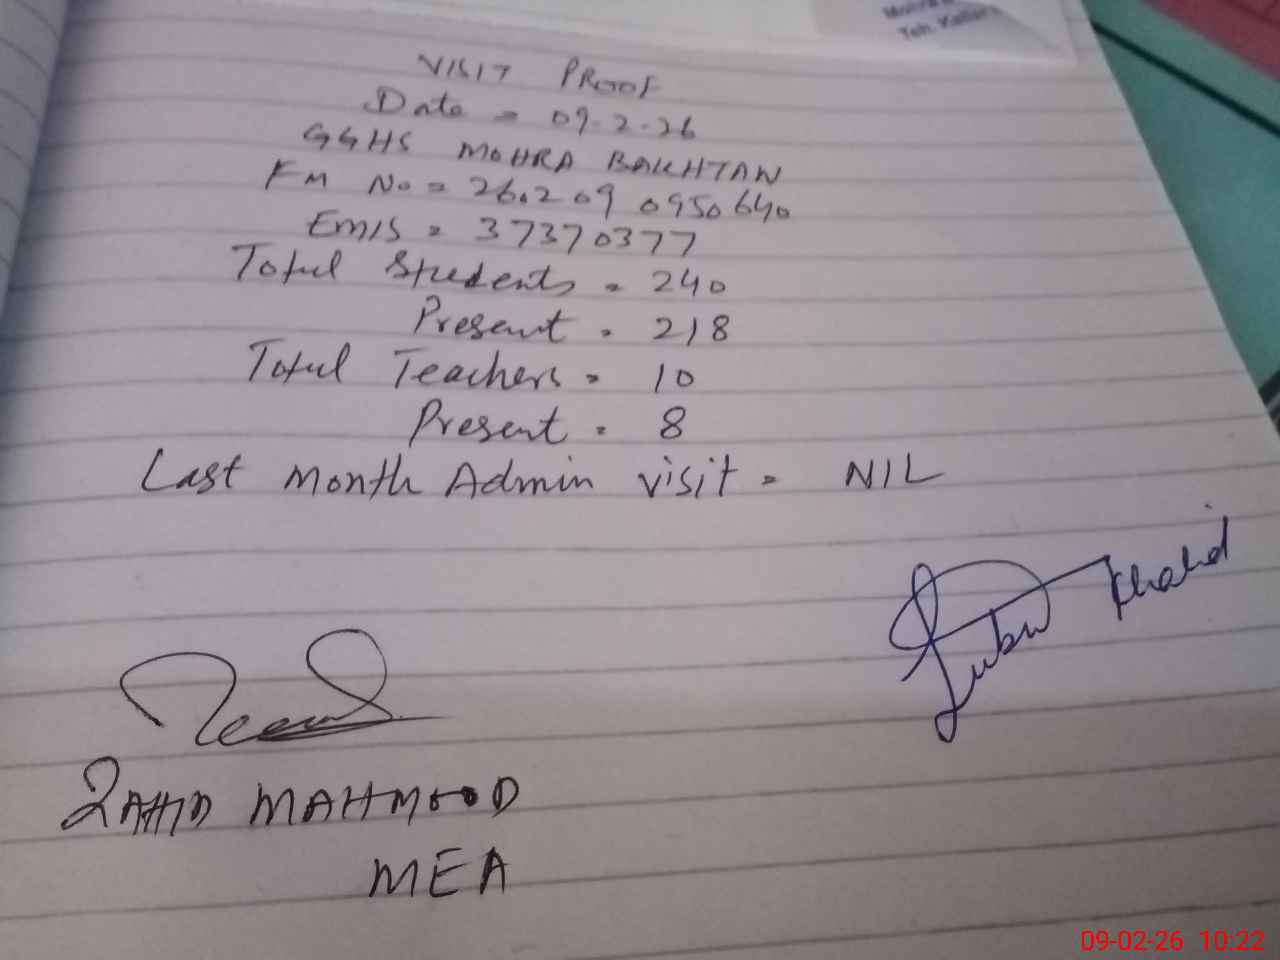 Mohra
Teh. Kallar
VISIT PROOF
Date = 09.2.26
GGHS MOHRA BAKHTAN
KM No = 260209 0950640
EMIS = 37370377
Total Students = 240
Present = 218
Total Teachers = 10
Present = 8
Last Month Admin visit = NIL
Khalid
ZAHID MAHMOOD
MEA
09-02-26 10:22